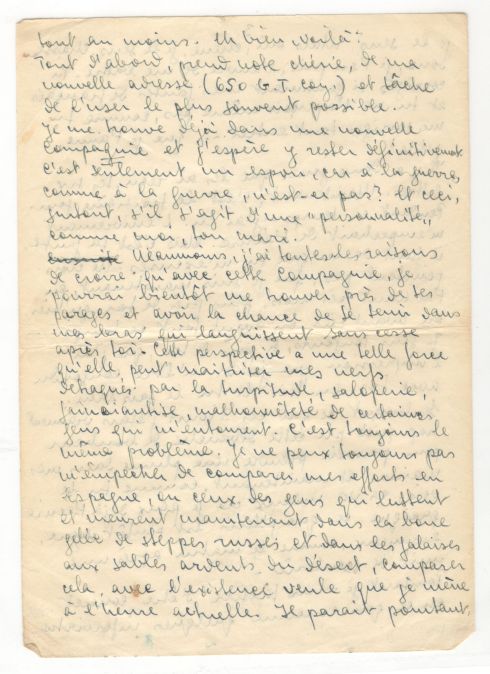 tout au moins. Eh bien, voilà:
Tout d'abord, prend note chérie, de ma
nouvelle adresse (650 G.T. coy.) et tâche
de l'user le plus souvent possible.
Je me trouve déjà dans une nouvelle
Compagnie et j'espère y rester définitivement
c'est seulement un espoir, car à la guerre,
comme à la guerre, n'est-ce pas? Et ceci,
surtout, s'il s'agit d'une "personnalité",
comme moi, ton mari.
Néanmoins, j'ai toutes les raisons
de croire qu'avec cette Compagnie, je
pourrai bientôt me trouver près de tes
parages et avoir la chance de te tenir dans
mes bras qui languissent sans cesse
après toi. Cette perspective a une telle force
qu'elle, peut maitriser mes nerfs
détraqués par la turpitude, saloperie,
malhonnêteté de certaines
gens qui m'entourent. C'est toujours le
même problème. Je ne peux toujours pas
m'empêcher de comparer mes efforts en
Espagne, ou ceux des gens qui luttent
et meurent maintenant dans la boue
gelée de steppes russes et dans les falaises
aux sables ardents du désert, comparer
cela, avec l'existence veule que je mène
à l'heure actuelle. Il parait pourtant,